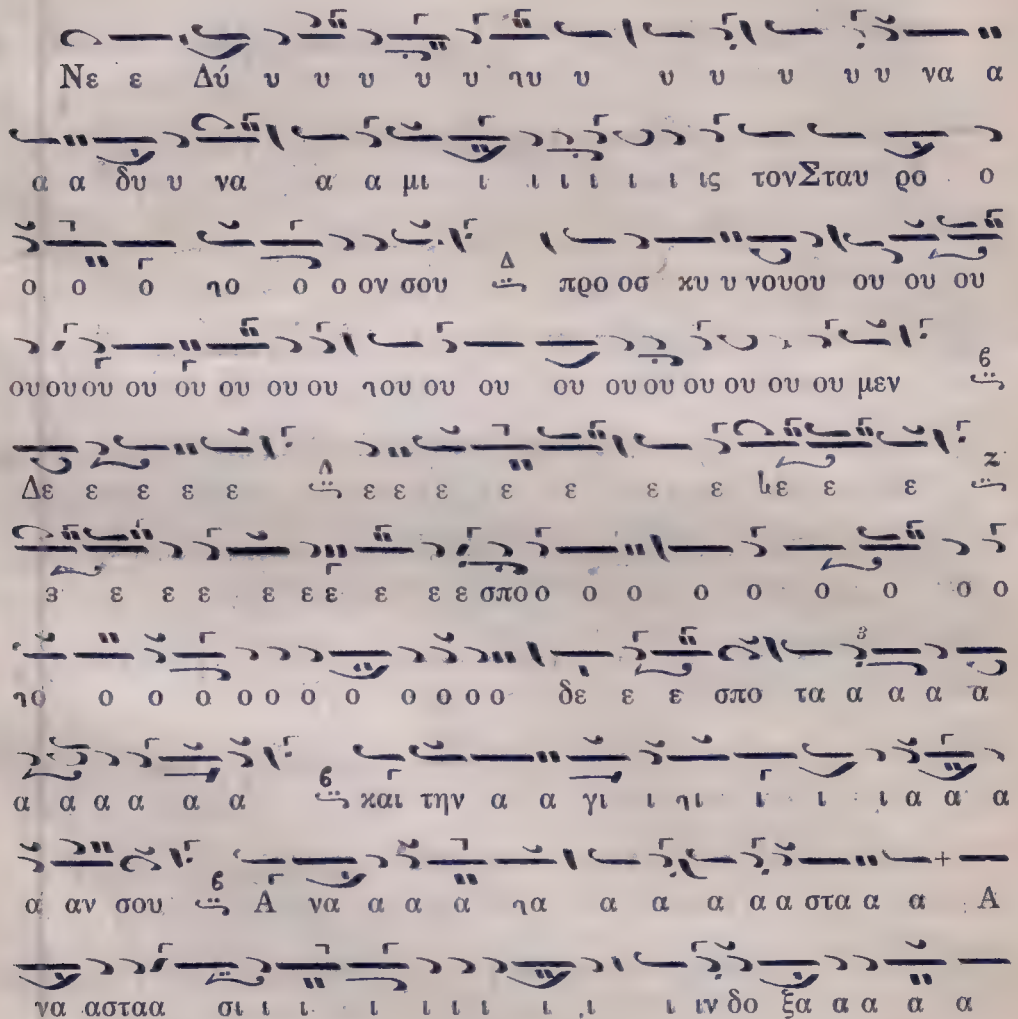 Νε ε Δύ υ υ υ υ υ ηυ υ υ υ υ υ υ να α
α α δυ υ να α α μι ι ι ι ι ι ι ις τον Σταυ ρο ο
ο ο ο ηο ο ο ον σου Δ προ οσ κυ υ νουου ου ου ου
ου ου ου ου ου ου ου ου ηου ου ου ου ου ου ου ου ου ου μεν ϐ
Δε ε ε ε ε Δ ε ε ε ε ε ε ε ε ε ε Ζ
ε ε ε ε ε ε ε ε ε ε σπο ο ο ο ο ο ο ο ο ο
ηο ο ο ο ο ο ο ο ο ο ο ο δε ε ε σπο τα α α α α
α α α α α α ϐ και την α α γι ι ηι ι ι ι α α α
α αν σου ϐ Α να α α α ηα α α α α α στα α α Α
να ασταα σι ι ι ι ι ι ι ι ι ι ιν δο ξα α α α α